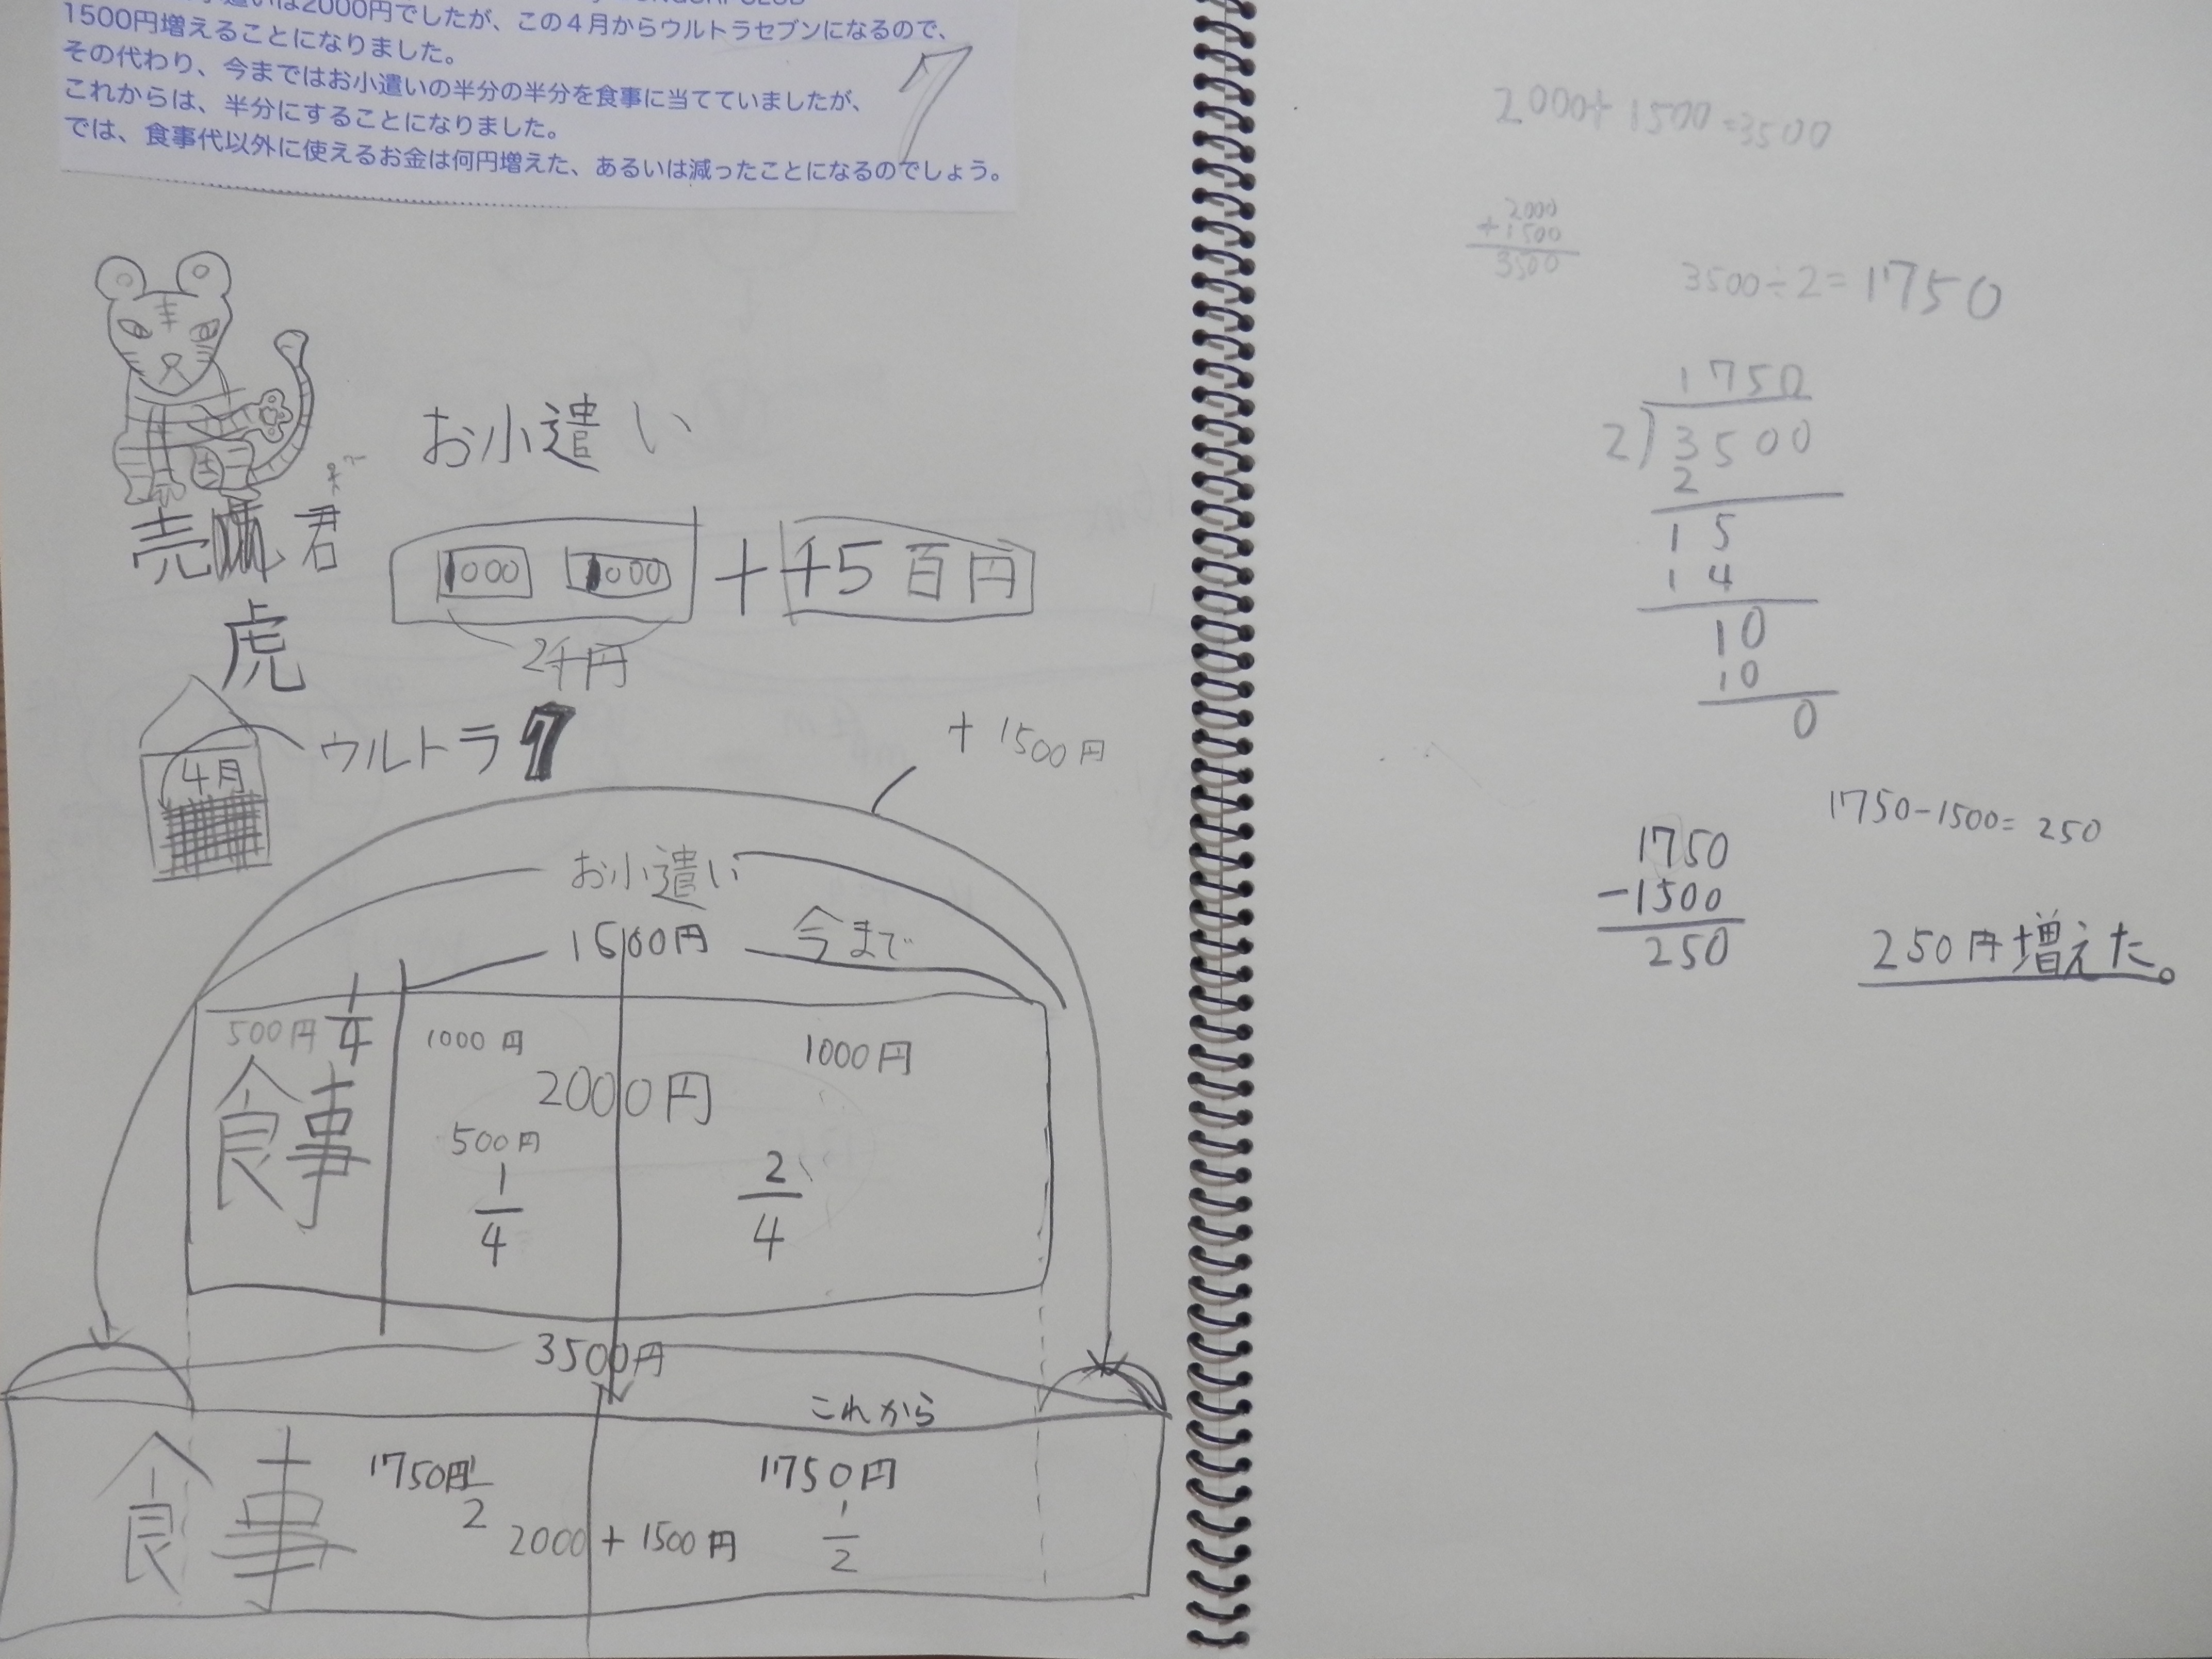 遣いは2000円でしたが、この4月からウルトラセブンになるので、
1500円増えることになりました。
その代わり、今まではお小遣いの半分の半分を食事に当てていましたが、
これからは、半分にすることになりました。
では、食事代以外に使えるお金は何円増えた、あるいは減ったことになるのでしょう。
7
お小遣い
売 君
虎
1000 1000 + 千5百円
2千円
4月
ウルトラ7
+ 1500円
お小遣い
1500円 今まで
500円 1/4 1000円 1000円
食事
2000円
500円
1/4 2/4
3500円
これから
食事 1750円 1/2 1750円
1/2
2000 + 1500円
2000+1500=3500
2000
+1500
3500
3500÷2=1750
1750
2)3500
2
15
14
10
10
0
1750-1500=250
1750
-1500
250
250円増えた。